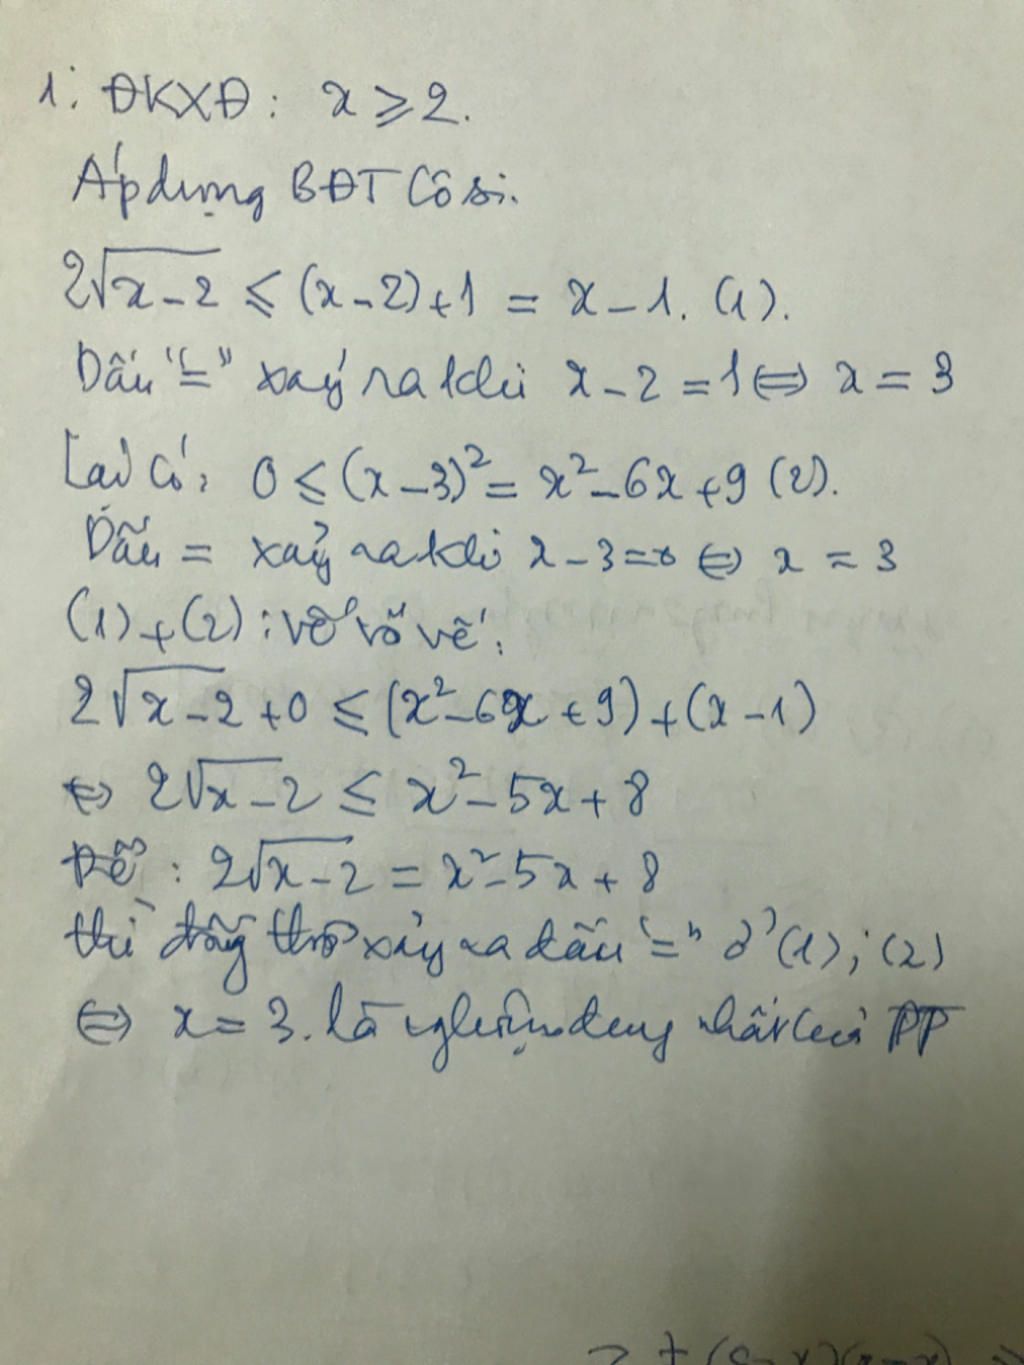 1. ĐKXĐ: x ⩾ 2.
Áp dụng BĐT Cô si.
2√(x-2) ⩽ (x-2)+1 = x-1. (1).
Dấu "=" xảy ra khi x-2=1 ⇔ x = 3
Lại có: 0 ⩽ (x-3)² = x²-6x+9 (2).
Dấu = xảy ra khi x-3=0 ⇔ x = 3
(1)+(2): vế với vế:
2√(x-2)+0 ⩽ (x²-6x+9)+(x-1)
⇔ 2√(x-2) ⩽ x²-5x+8
Để: 2√(x-2) = x²-5x+8
thì đồng thời xảy ra dấu "=" ở (1); (2)
⇔ x = 3. là nghiệm duy nhất của PT